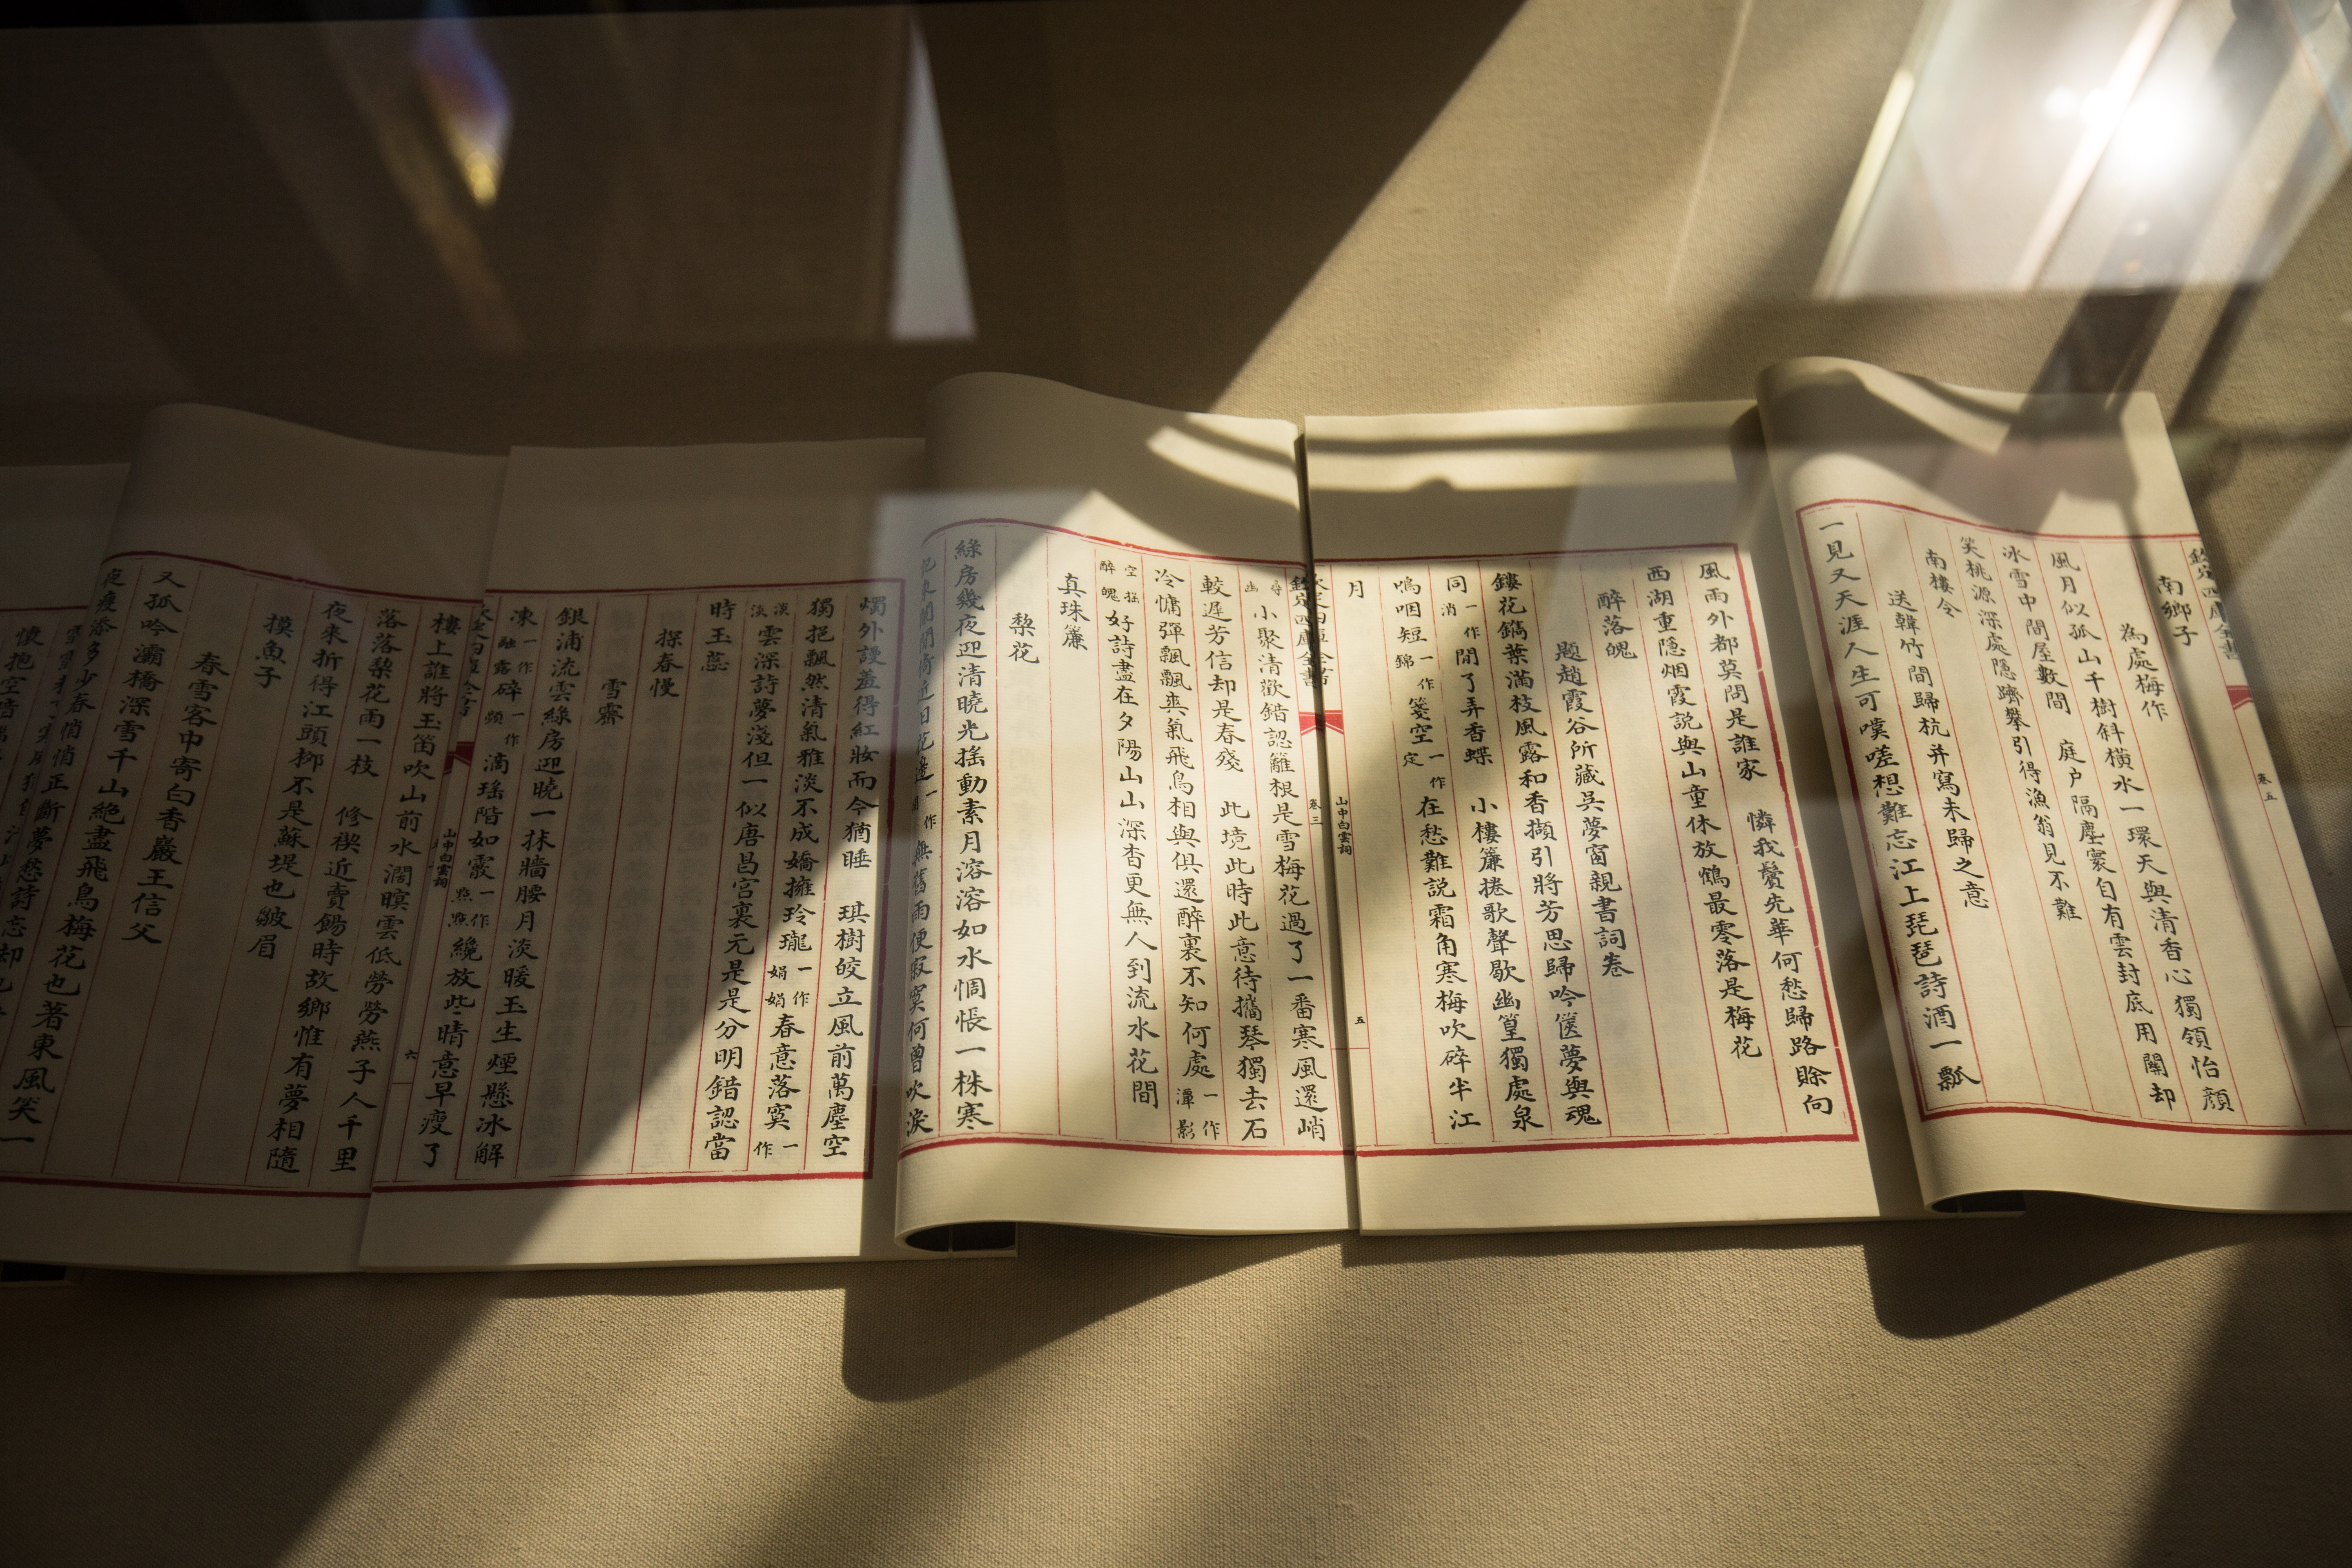 南鄉子
為處梅作
風月似孤山千樹斜橫水一環天與清香心獨領怡顏
冰雪中間屋數間　庭户隔塵寰自有雲封底用關却
笑桃源深處隱躋攀引得漁翁見不難
南樓令
送韓竹間歸杭并寫未歸之意
一見又天涯人生可嘆嗟想難忘江上琵琶詩酒一瓢
卷五
風雨外都莫問是誰家　憐我鬢先華何愁歸路賖向
西湖重隱烟霞説與山童休放鶴最零落是梅花
醉落魄
題趙霞谷所藏吳夢窗親書詞卷
鏤花鐫葉滿枝風露和香擷引將芳思歸吟篋夢與魂
同一作消閒了弄香蝶　小樓簾捲歌聲歇幽篁獨處泉
嗚咽短一作錦箋空一作定在愁難説霜角寒梅吹碎半江
月
山中白雲詞　五
欽定四庫全書　卷三
小聚清歡錯認籬根是雪梅花過了一番寒風還峭
較遲芳信却是春殘　此境此時此意待攜琴獨去石
冷慵彈飄飄爽氣飛鳥相與俱還醉裏不知何處一作潭影
空搖醉魄好詩盡在夕陽山山深杳更無人到流水花間
真珠簾
梨花
綠房幾夜迎清曉光搖動素月溶溶如水惆悵一株寒
近日花邊一作無舊雨便寂寞何曾吹淚
燭外謾羞得紅妝而今猶睡　琪樹皎立風前萬塵空
獨挹飄然清氣雅淡不成嬌擁玲瓏一作娟娟春意落寞一作
溟淡雲深詩夢淺但一似唐昌宮裏元是是分明錯認當
時玉蕊
探春慢
雪霽
銀浦流雲綠房迎曉一抹牆腰月淡暖玉生煙懸冰解
凍一作融露碎一作頻滴瑤階如霰一作點點纔放些晴意早瘦了
山中白雲詞　六
樓上誰將玉笛吹山前水濶暝雲低勞勞燕子人千里
落落梨花雨一枝　修禊近賣餳時故鄉惟有夢相隨
夜來折得江頭栁不是蘇堤也皺眉
摸魚子
春雪客中寄白香巖王信父
又孤吟灞橋深雪千山絕盡飛鳥梅花也著東風笑一
夜瘦添多少春悄悄正斷夢愁詩忘却
懷抱空